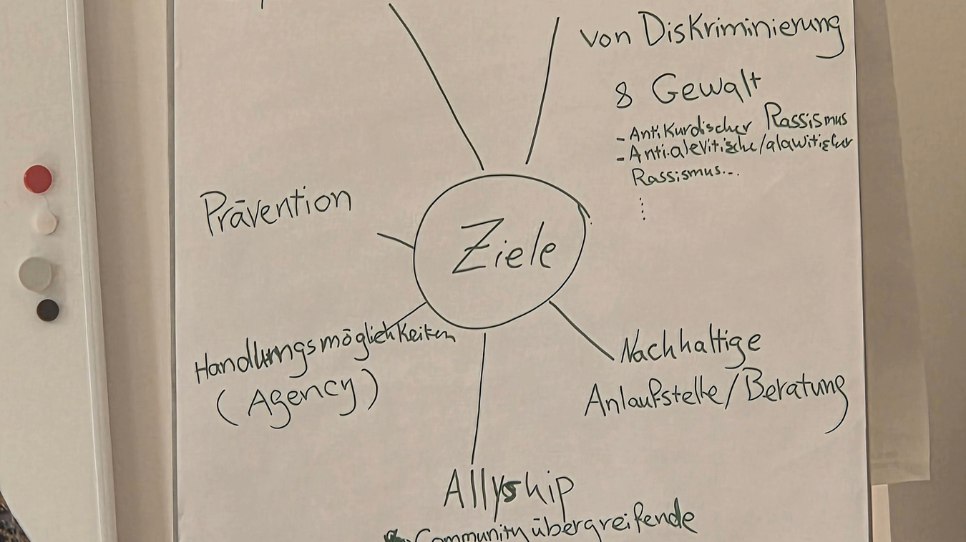 von Diskriminierung
& Gewalt
- Antikurdischer Rassismus
- Antialevitische/alawitischer
Rassismus...
Prävention
Ziele
Handlungsmöglichkeiten
(Agency)
Nachhaltige
Anlaufstelle/Beratung
Allyship
Communityübergreifende